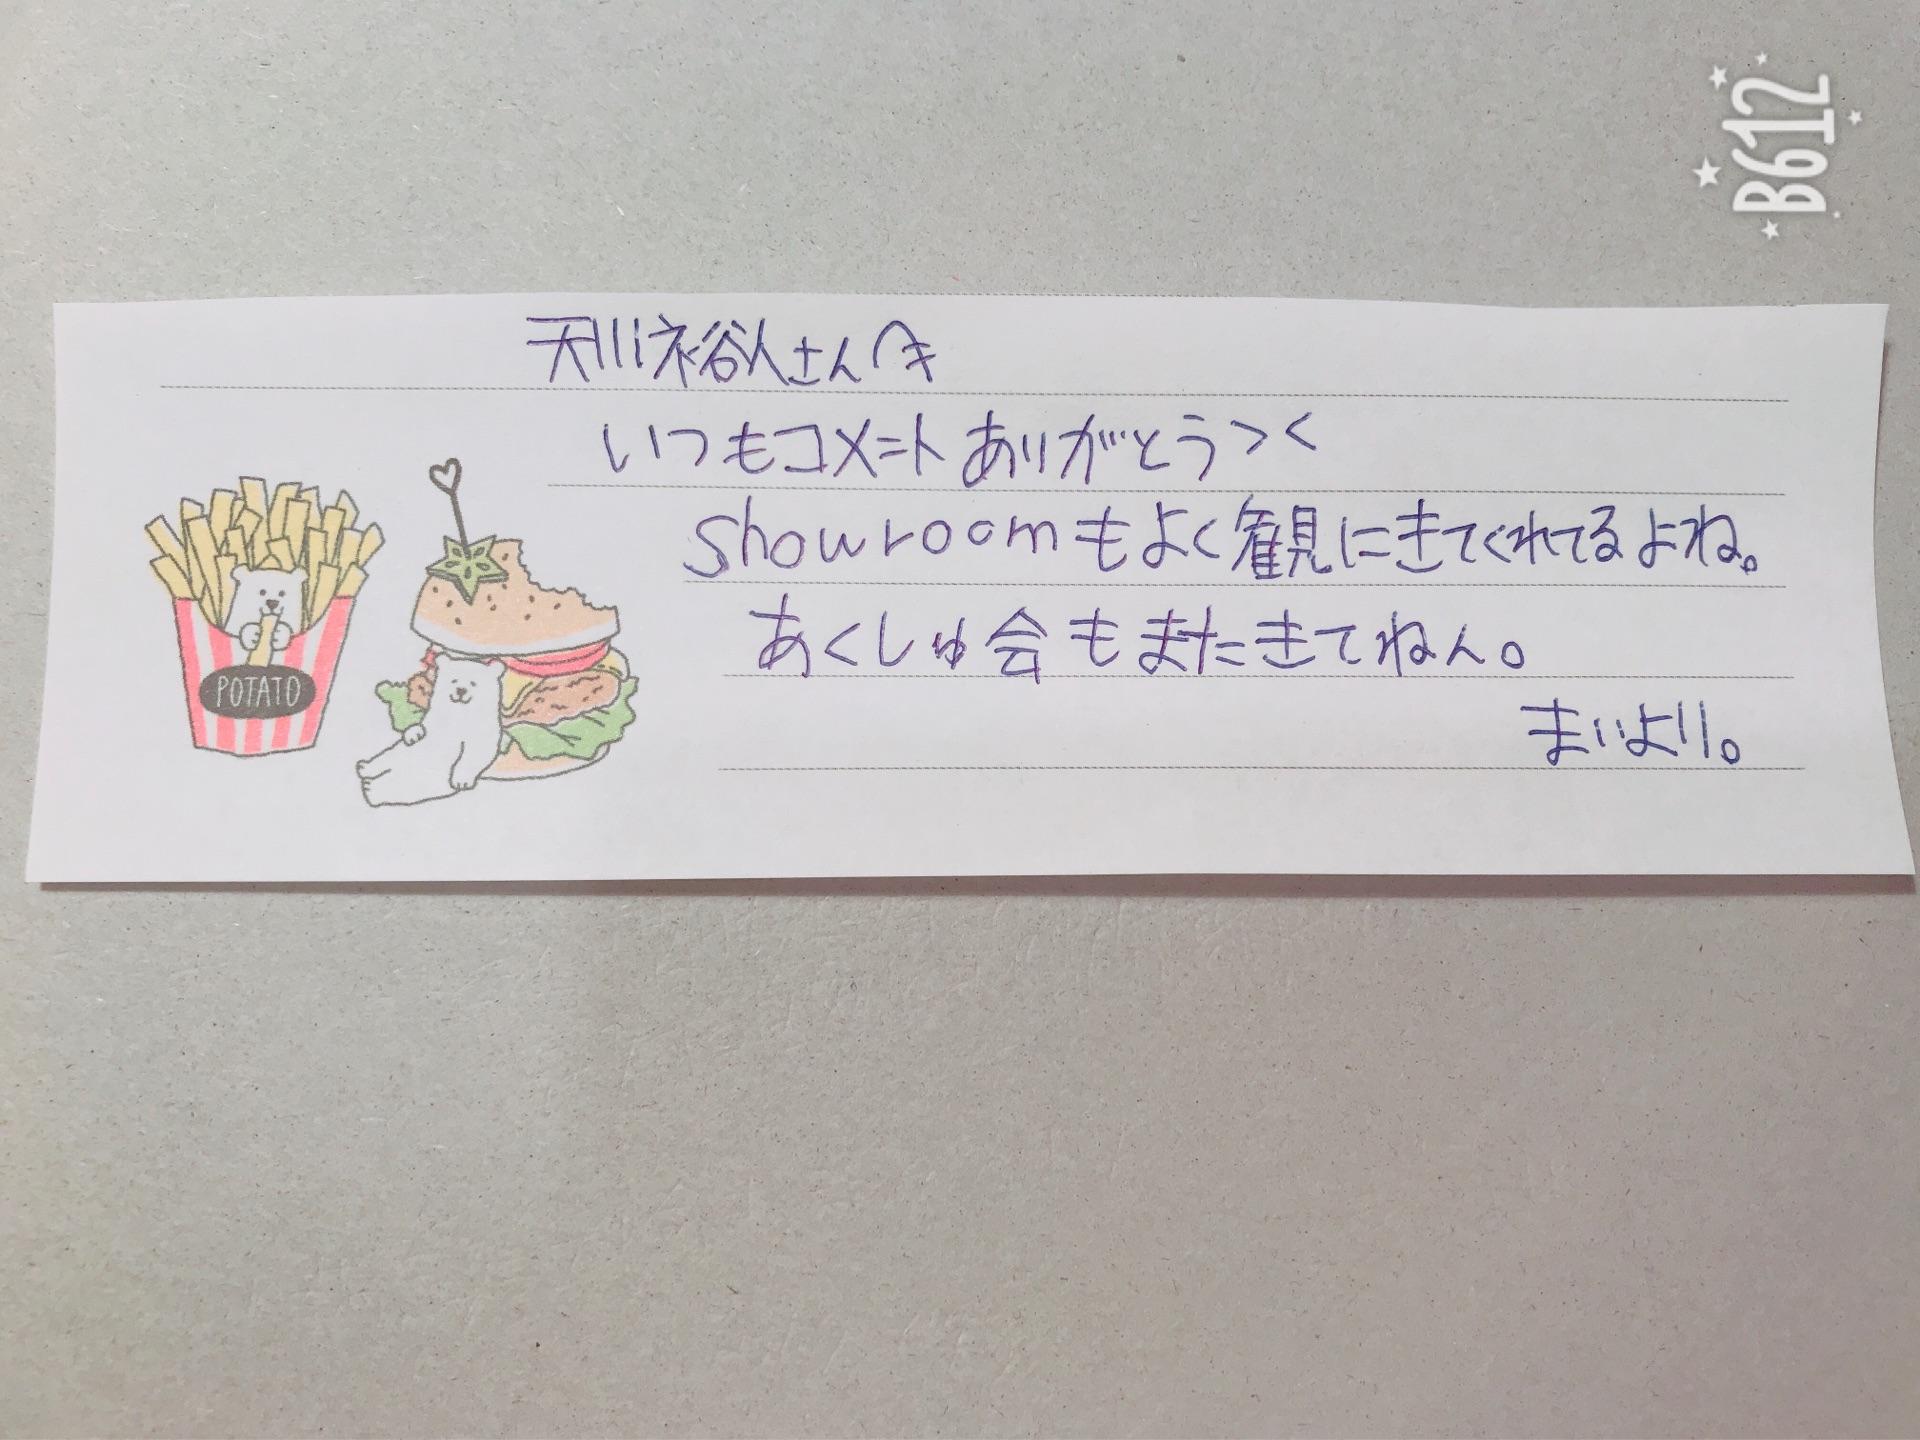 天川裕人さんへ
いつもコメントありがとう><
showroomもよく観にきてくれてるよね。
あくしゅ会もまたきてねん。
まいより。
POTATO
B612